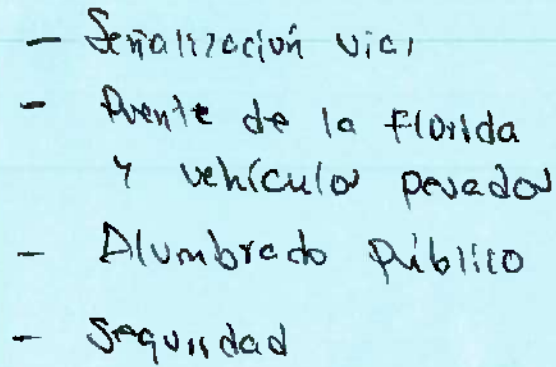 - Señalización vial
- Puente de la Florida
y vehículos pesados
- Alumbrado Público
- Seguridad